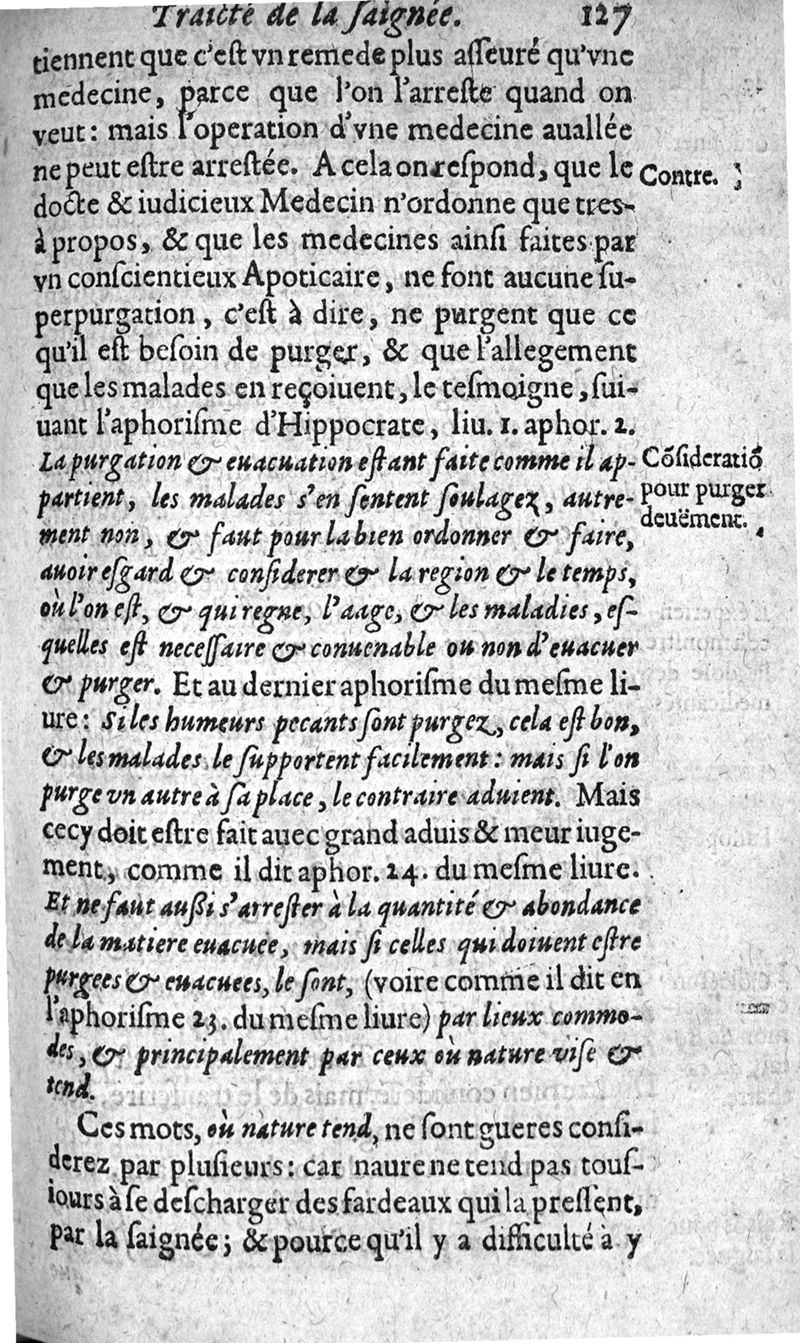 Traicté de la ſaignée. 127
tiennent que c'eſt vn remede plus aſſeuré qu'vne
medecine, parce que l'on l'arreſte quand on
veut: mais l'operation d'vne medecine auallée
ne peut eſtre arreſtée. A cela on reſpond, que le
Contre.
docte & iudicieux Medecin n'ordonne que tres-
à propos, & que les medecines ainſi faites par
vn conſcientieux Apoticaire, ne font aucune ſu-
perpurgation, c'eſt à dire, ne purgent que ce
qu'il eſt beſoin de purger, & que l'allegement
que les malades en reçoiuent, le teſmoigne, ſui-
uant l'aphoriſme d'Hippocrate, liu. 1. aphor. 2.
La purgation & euacuation eſtant faite comme il ap-
Cõſideratiõ
partient, les malades s'en ſentent ſoulagez, autre-
pour purger
ment non, & faut pour la bien ordonner & faire,
deuëment.
auoir eſgard & conſiderer & la region & le temps,
où l'on eſt, & qui regne, l'aage, & les maladies, eſ-
quelles eſt neceſſaire & conuenable ou non d'euacuer
& purger. Et au dernier aphoriſme du meſme li-
ure: Si les humeurs pecants ſont purgez, cela eſt bon,
& les malades le ſupportent facilement: mais ſi l'on
purge vn autre à ſa place, le contraire aduient. Mais
cecy doit eſtre fait auec grand aduis & meur iuge-
ment, comme il dit aphor. 24. du meſme liure.
Et ne faut auſſi s'arreſter à la quantité & abondance
de la matiere euacuée, mais ſi celles qui doiuent eſtre
purgees & euacuees, le ſont, (voire comme il dit en
l'aphoriſme 23. du meſme liure) par lieux commo-
des, & principalement par ceux où nature viſe &
tend.
Ces mots, où nature tend, ne ſont gueres conſi-
derez par pluſieurs: car naure ne tend pas touſ-
iours à ſe deſcharger des fardeaux qui la preſſent,
par la ſaignée; & pource qu'il y a difficulté à y